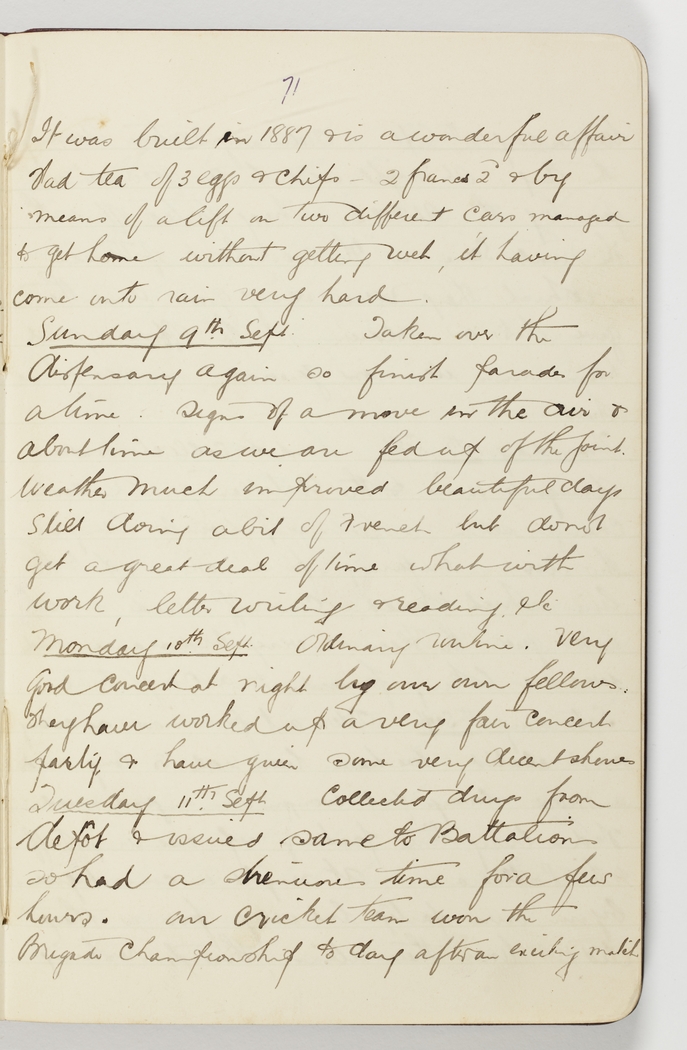 71
It was built in 1887 & is a wonderful affair
Had tea of 3 eggs & chips – 2 francs 2d & by
means of a lift on two different cars managed
to get home without getting wet, it having
come onto rain very hard.
Sunday 9th Sept. Taken over the
dispensary again so finish parades for
a time. Signs of a move in the air &
about time as we are fed up of the joint.
Weather much improved beautiful days
Still doing a bit of French but do not
get a great deal of time what with
work, letter writing & reading, etc
Monday 10th Sept. Ordinary routine. Very
good concert at night by our own fellows.
They have worked up a very fair concert
party & have given some very decent shows
Tuesday 11th Sept Collected drugs from
depot & issued same to Battalions
so had a strenuous time for a few
hours. Our cricket team won the
Brigade Championship to day after an exciting match